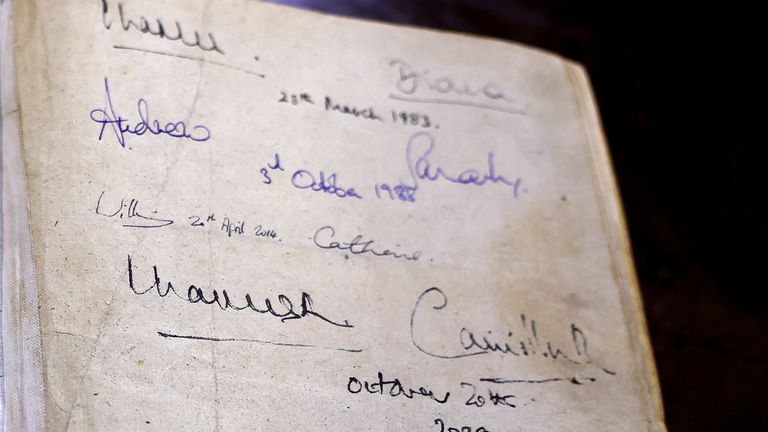 Charles. Diana
28th March 1983.
Andrew Sarah.
3rd October 1988
William 20th April 2014. Catherine.
Charles R Camilla R
October 20th